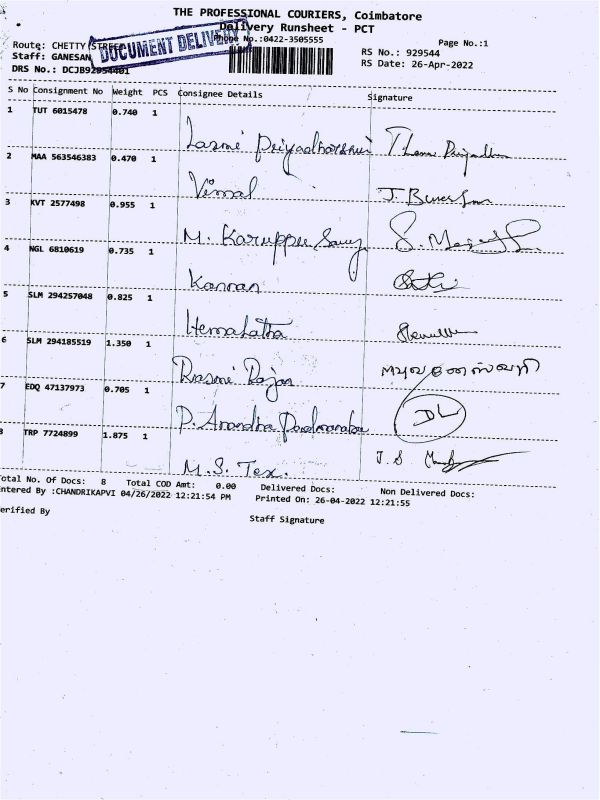 THE PROFESSIONAL COURIERS, Coimbatore
Delivery Runsheet - PCT
Phone No.:0422-3505555
Page No.:1
Route: CHETTY STREET
RS No.: 929544
Staff: GANESAN
RS Date: 26-Apr-2022
DRS No.: DCJB92954401
DOCUMENT DELIVERY
S No Consignment No Weight PCS Consignee Details Signature
1 TUT 6015478 0.740 1
Laxmi Priyadharshni
2 MAA 563546383 0.470 1
Vimal
3 KVT 2577498 0.955 1
M. Karuppu Samy
4 NGL 6810619 0.735 1
Kannan
5 SLM 294257048 0.825 1
Hemalatha
6 SLM 294185519 1.350 1
Rasmi Rajan
7 EDQ 47137973 0.705 1
P. Anandha Padmanaba
DL
8 TRP 7724899 1.875 1
M.S. Tex.
J.S
Total No. Of Docs: 8 Total COD Amt: 0.00 Delivered Docs: Non Delivered Docs:
Entered By :CHANDRIKAPVI 04/26/2022 12:21:54 PM Printed On: 26-04-2022 12:21:55
Verified By
Staff Signature